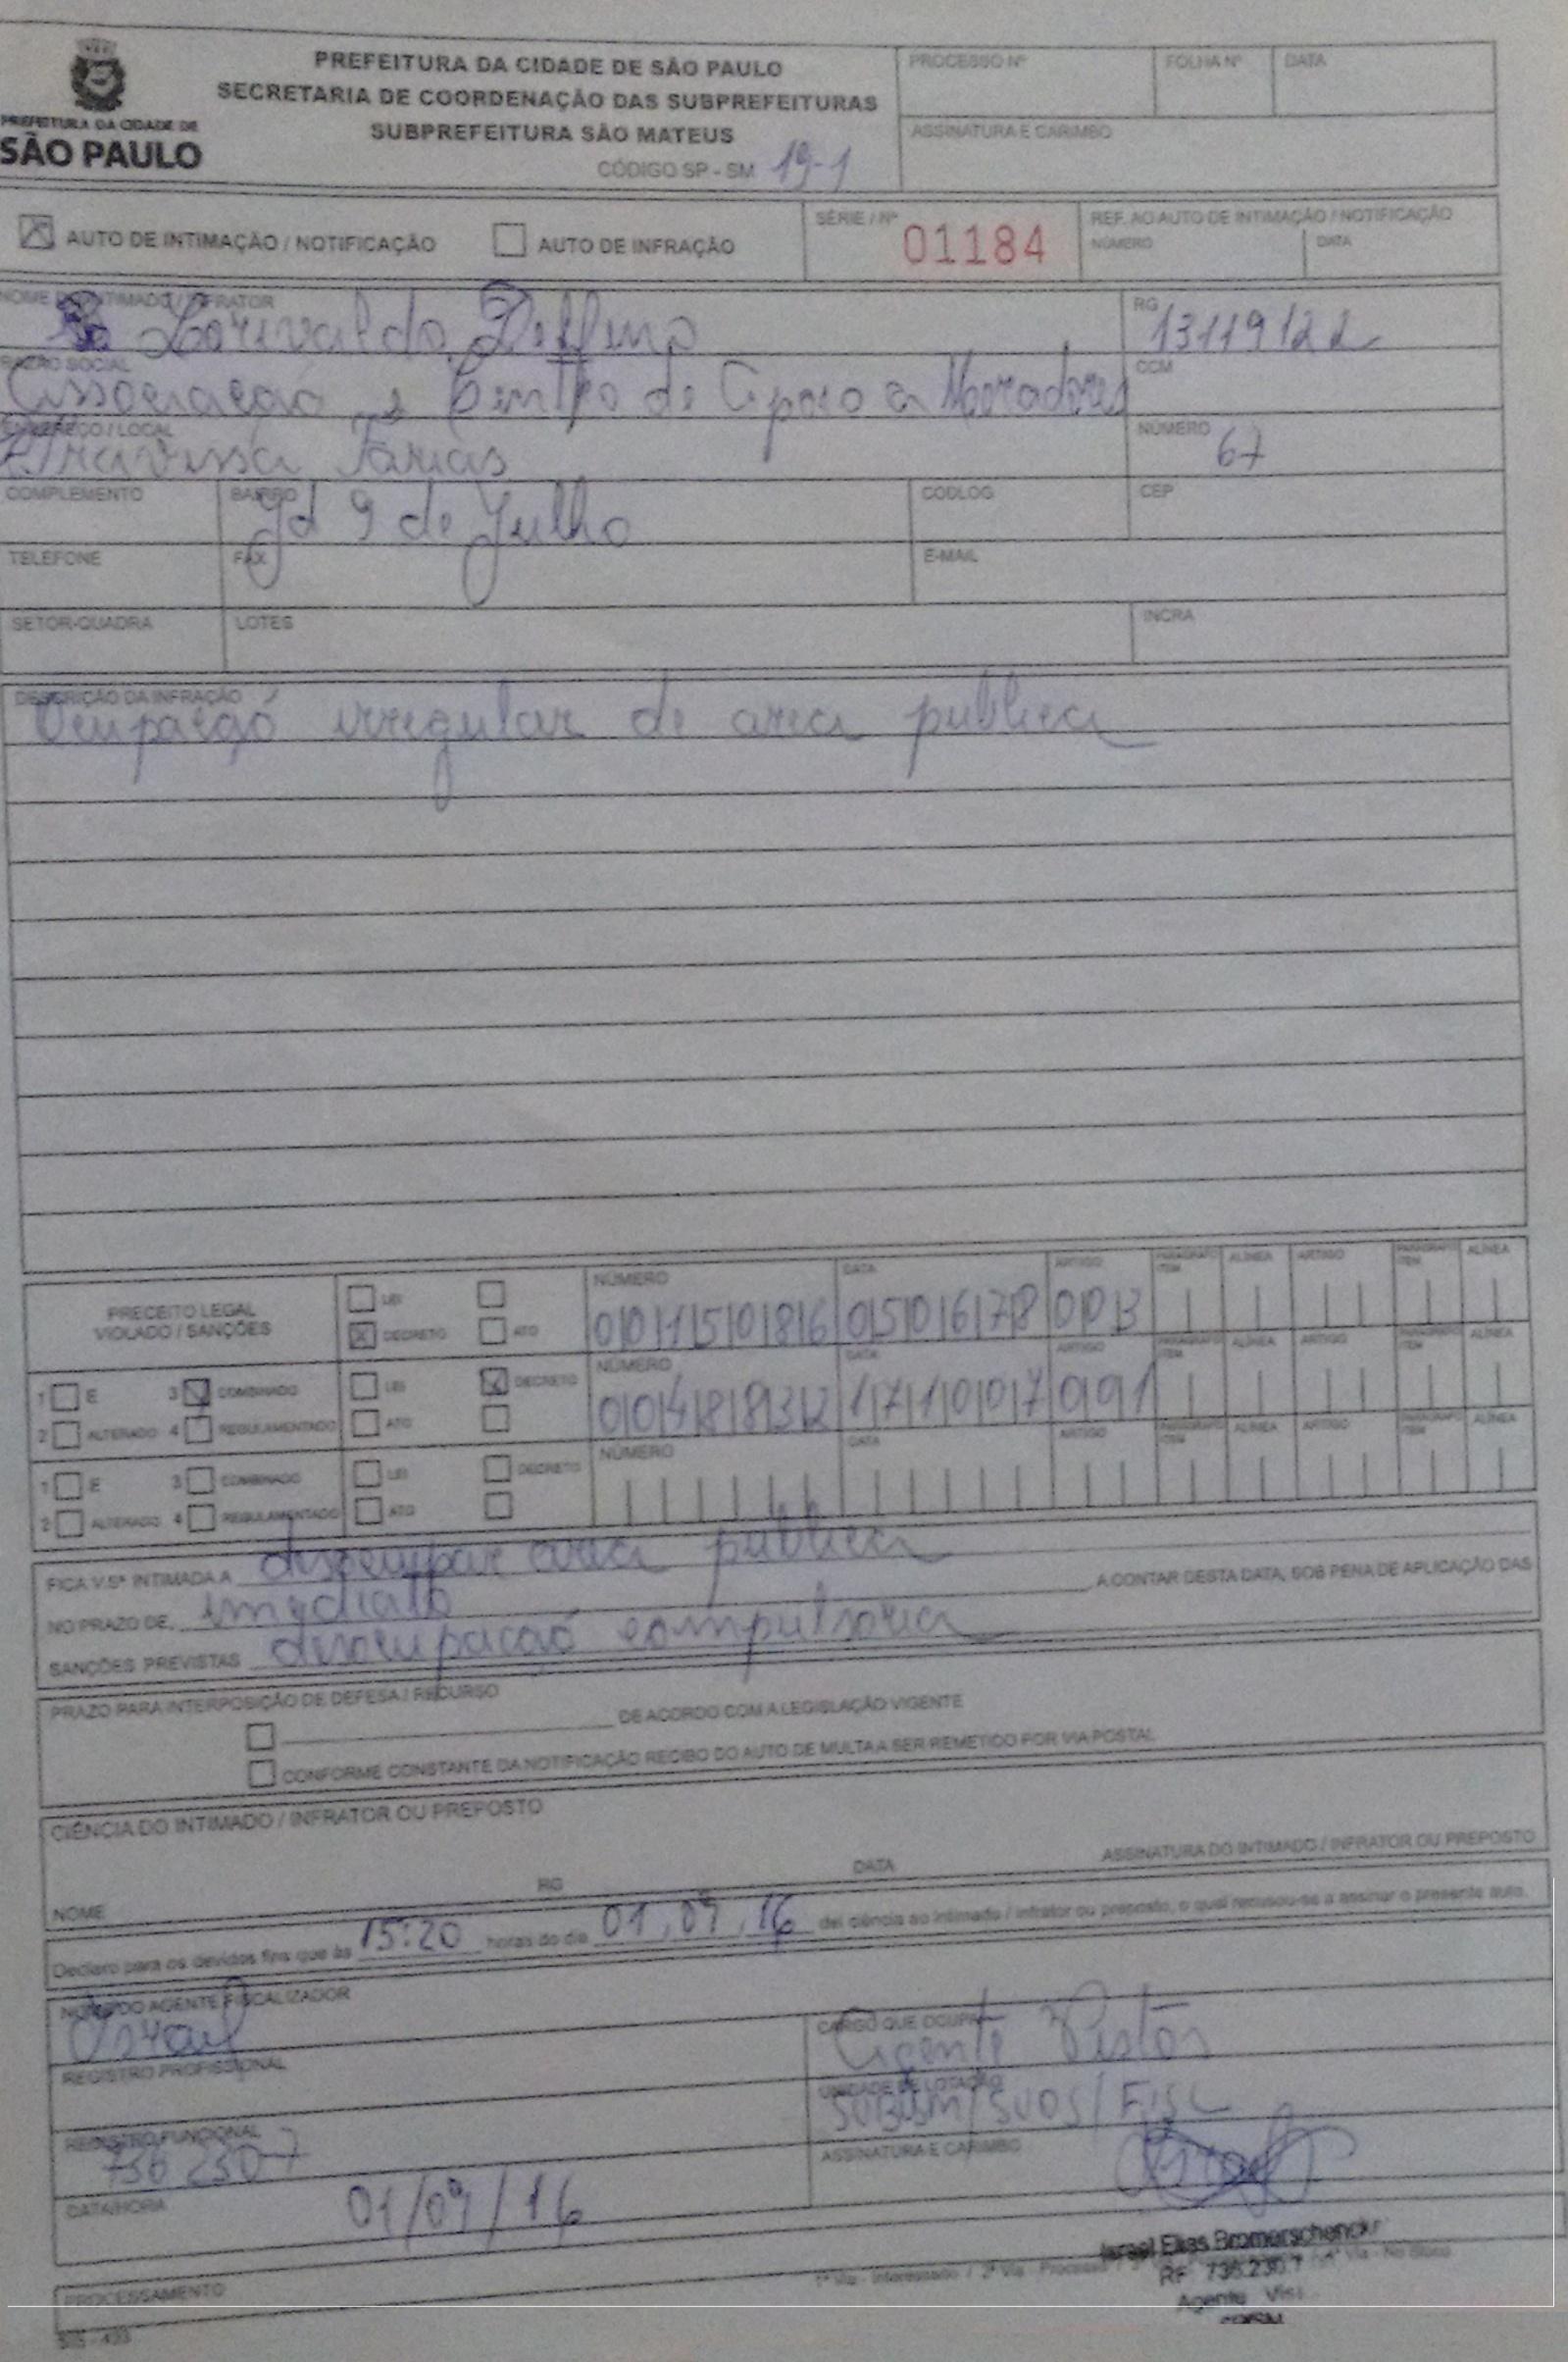 PREFEITURA DA CIDADE DE
SÃO PAULO
PREFEITURA DA CIDADE DE SÃO PAULO
SECRETARIA DE COORDENAÇÃO DAS SUBPREFEITURAS
SUBPREFEITURA SÃO MATEUS
CÓDIGO SP - SM 19-1
PROCESSO Nº FOLHA Nº DATA
ASSINATURA E CARIMBO
AUTO DE INTIMAÇÃO / NOTIFICAÇÃO AUTO DE INFRAÇÃO
SÉRIE / Nº 01184
REF. AO AUTO DE INTIMAÇÃO / NOTIFICAÇÃO
NÚMERO DATA
NOME DO INTIMADO / INFRATOR
Lorivaldo Delfino
RG
13119122
RAZÃO SOCIAL
Associação e Centro de Apoio a Moradores
CCM
ENDEREÇO / LOCAL
Travessa Farias
NÚMERO
67
COMPLEMENTO BAIRRO CODLOG CEP
Jd 9 de Julho
TELEFONE FAX E-MAIL
SETOR-QUADRA LOTES INCRA
DESCRIÇÃO DA INFRAÇÃO
Ocupação irregular de area publica
PRECEITO LEGAL
VIOLADO / SANÇÕES
LEI
DECRETO ATO
NÚMERO DATA ARTIGO PARÁGRAFO ITEM ALÍNEA ARTIGO PARÁGRAFO ITEM ALÍNEA
0015086 050678 003
1 E 3 COMBINADO LEI DECRETO
2 ALTERADO 4 REGULAMENTADO ATO
NÚMERO DATA ARTIGO PARÁGRAFO ITEM ALÍNEA ARTIGO PARÁGRAFO ITEM ALÍNEA
0048832 171007 001
1 E 3 COMBINADO LEI DECRETO
2 ALTERADO 4 REGULAMENTADO ATO
NÚMERO DATA ARTIGO PARÁGRAFO ITEM ALÍNEA ARTIGO PARÁGRAFO ITEM ALÍNEA
FICA V.Sª INTIMADA A desocupar area publica
NO PRAZO DE, imediato A CONTAR DESTA DATA, SOB PENA DE APLICAÇÃO DAS
SANÇÕES PREVISTAS desocupação compulsoria
PRAZO PARA INTERPOSIÇÃO DE DEFESA / RECURSO
DE ACORDO COM A LEGISLAÇÃO VIGENTE
CONFORME CONSTANTE DA NOTIFICAÇÃO RECIBO DO AUTO DE MULTA A SER REMETIDO POR VIA POSTAL
CIÊNCIA DO INTIMADO / INFRATOR OU PREPOSTO
NOME RG DATA ASSINATURA DO INTIMADO / INFRATOR OU PREPOSTO
Declaro para os devidos fins que às 15:20 horas do dia 01.09.16 dei ciência ao intimado / infrator ou preposto, o qual recusou-se a assinar o presente auto.
NOME DO AGENTE FISCALIZADOR
Israel
CARGO QUE OCUPA
Agente Vistor
REGISTRO PROFISSIONAL
UNIDADE DE LOTAÇÃO
SUBSM/SUOS/FISC
REGISTRO FUNCIONAL
736 230-7
ASSINATURA E CARIMBO
DATA/HORA
01/09/16
Israel Elias Bromerschenckr
RF 736.230.7
Agente
1ª Via - Interessado / 2ª Via - Processo
Via - No Bloco
PROCESSAMENTO